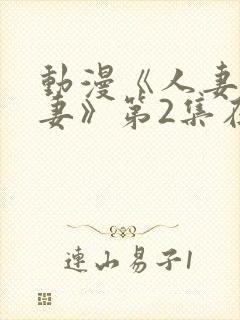 動漫《人妻
妻》第2集在
連山易子1